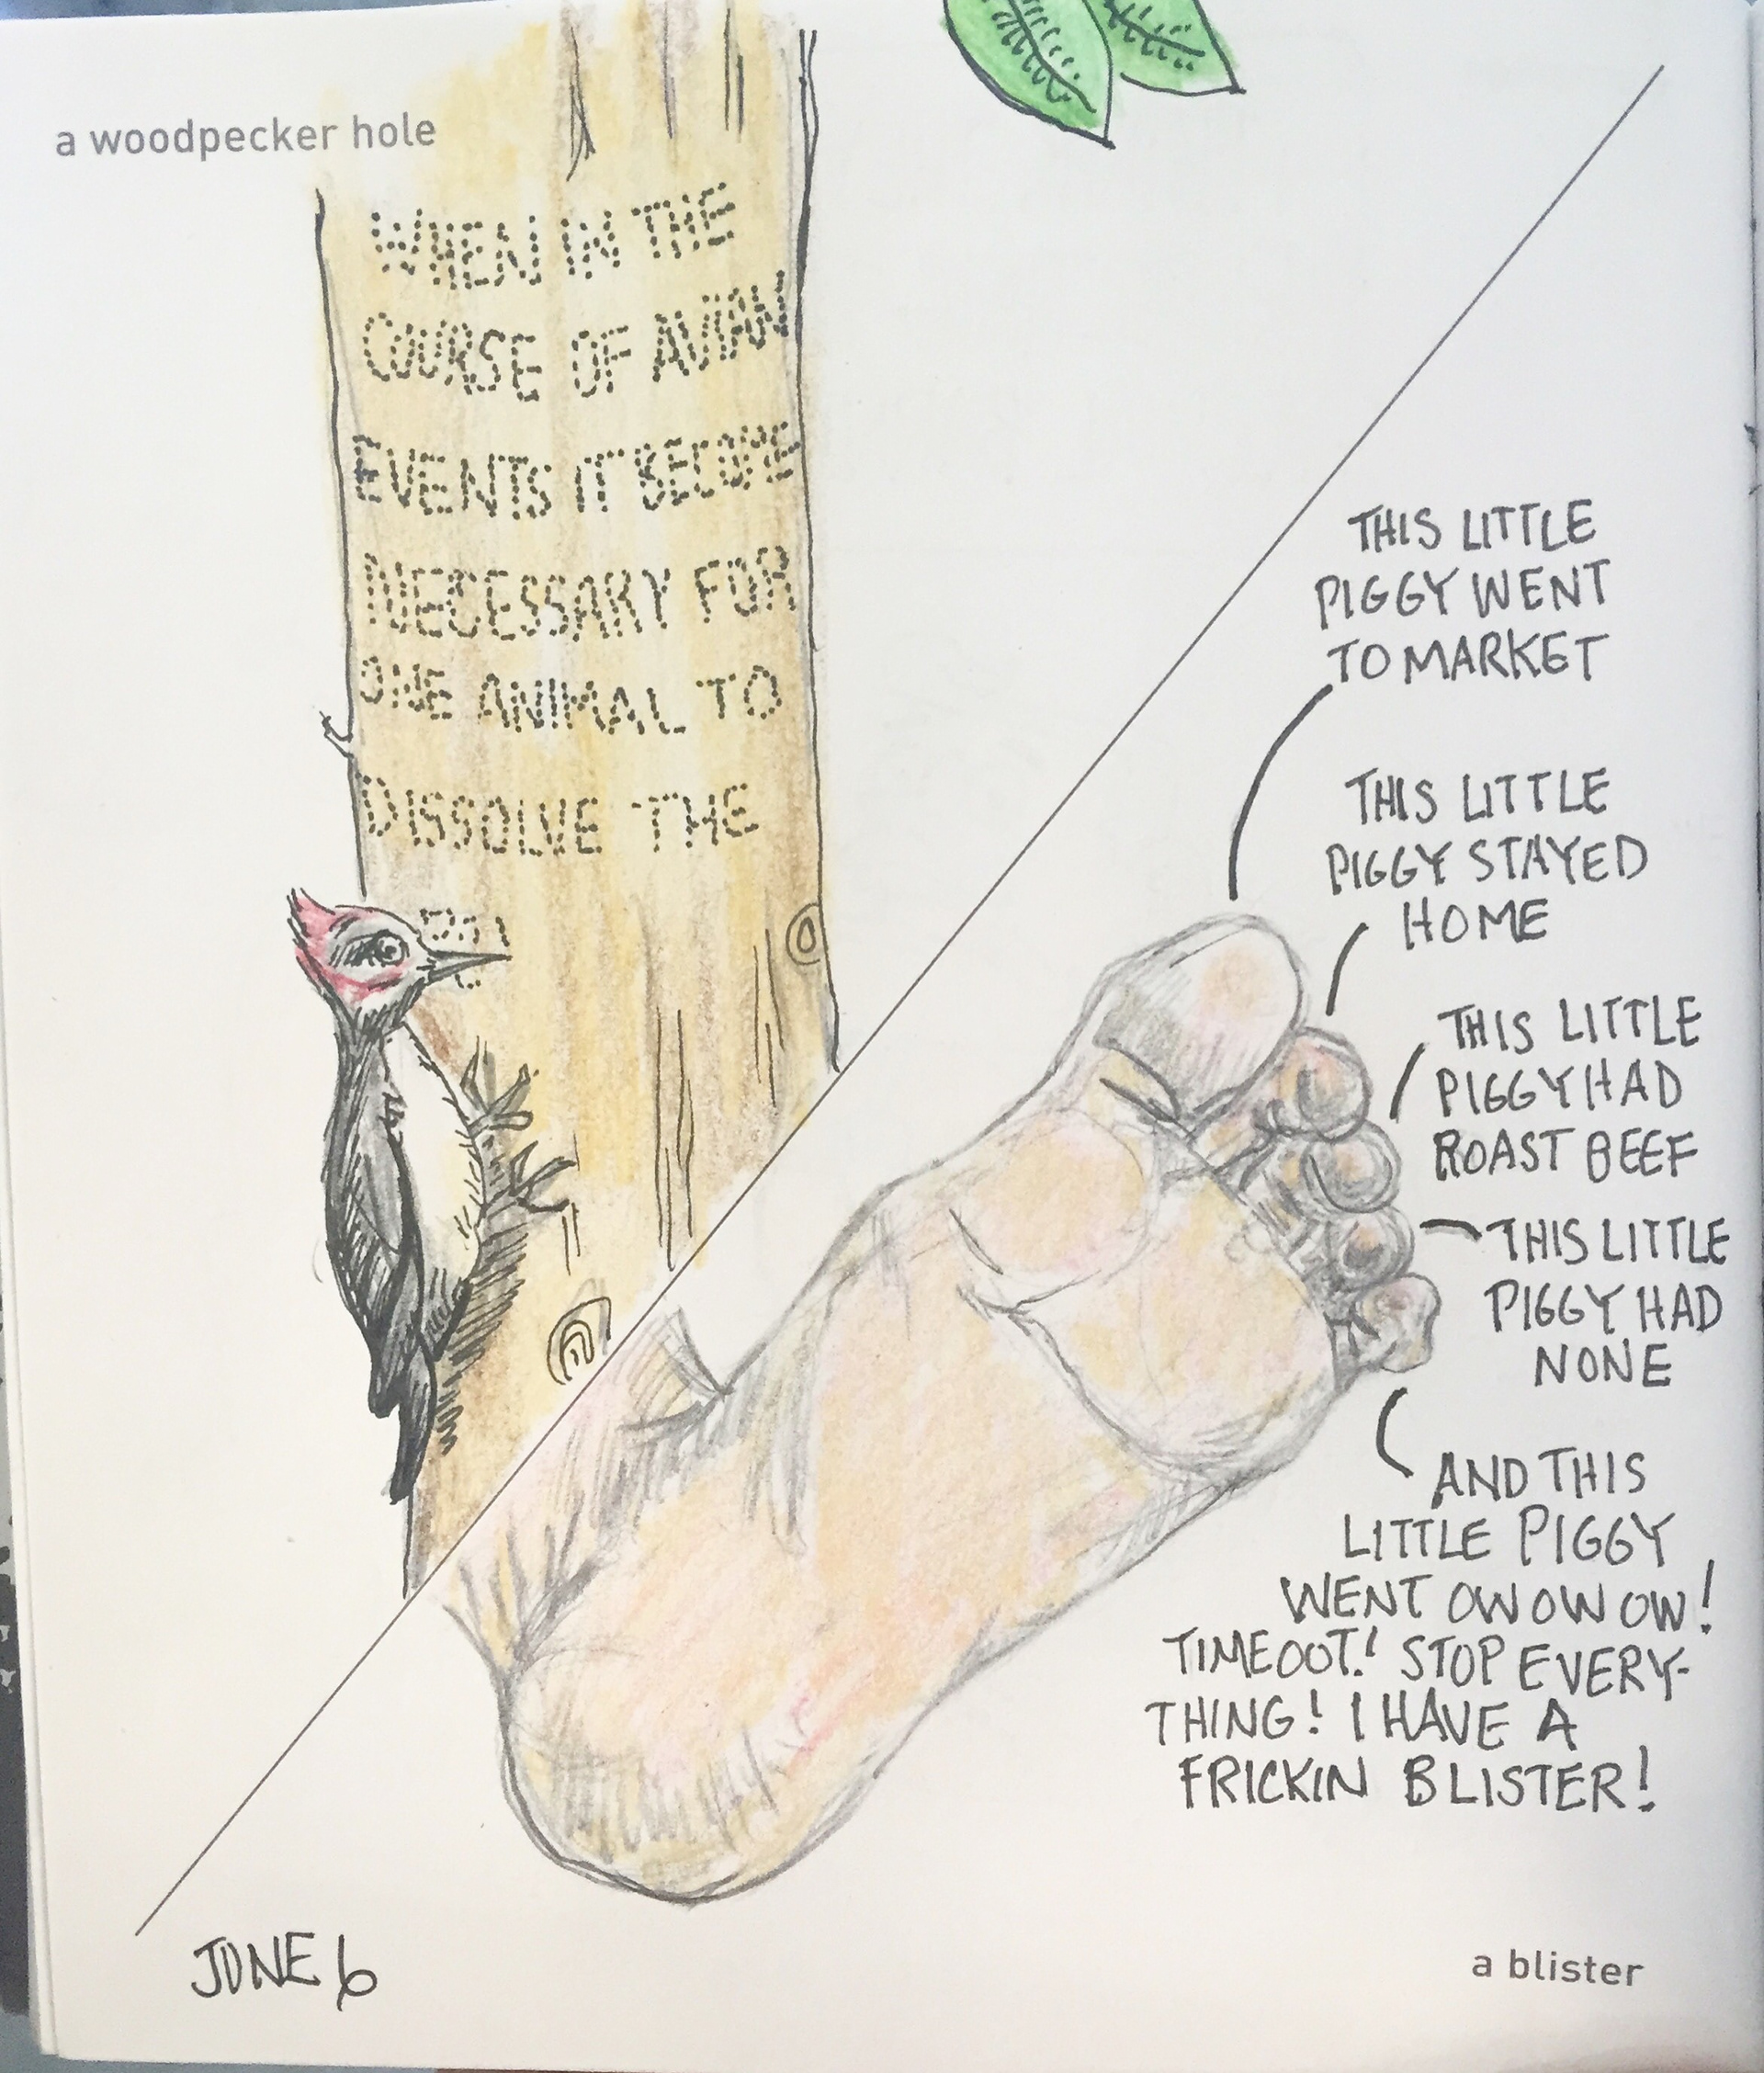 a woodpecker hole
WHEN IN THE
COURSE OF AVIAN
EVENTS IT BECOME
NECESSARY FOR
ONE ANIMAL TO
DISSOLVE THE
THIS LITTLE
PIGGY WENT
TO MARKET
THIS LITTLE
PIGGY STAYED
HOME
THIS LITTLE
PIGGY HAD
ROAST BEEF
THIS LITTLE
PIGGY HAD
NONE
AND THIS
LITTLE PIGGY
WENT OW OW OW!
TIMEOUT! STOP EVERY-
THING! I HAVE A
FRICKIN BLISTER!
JUNE 6
a blister